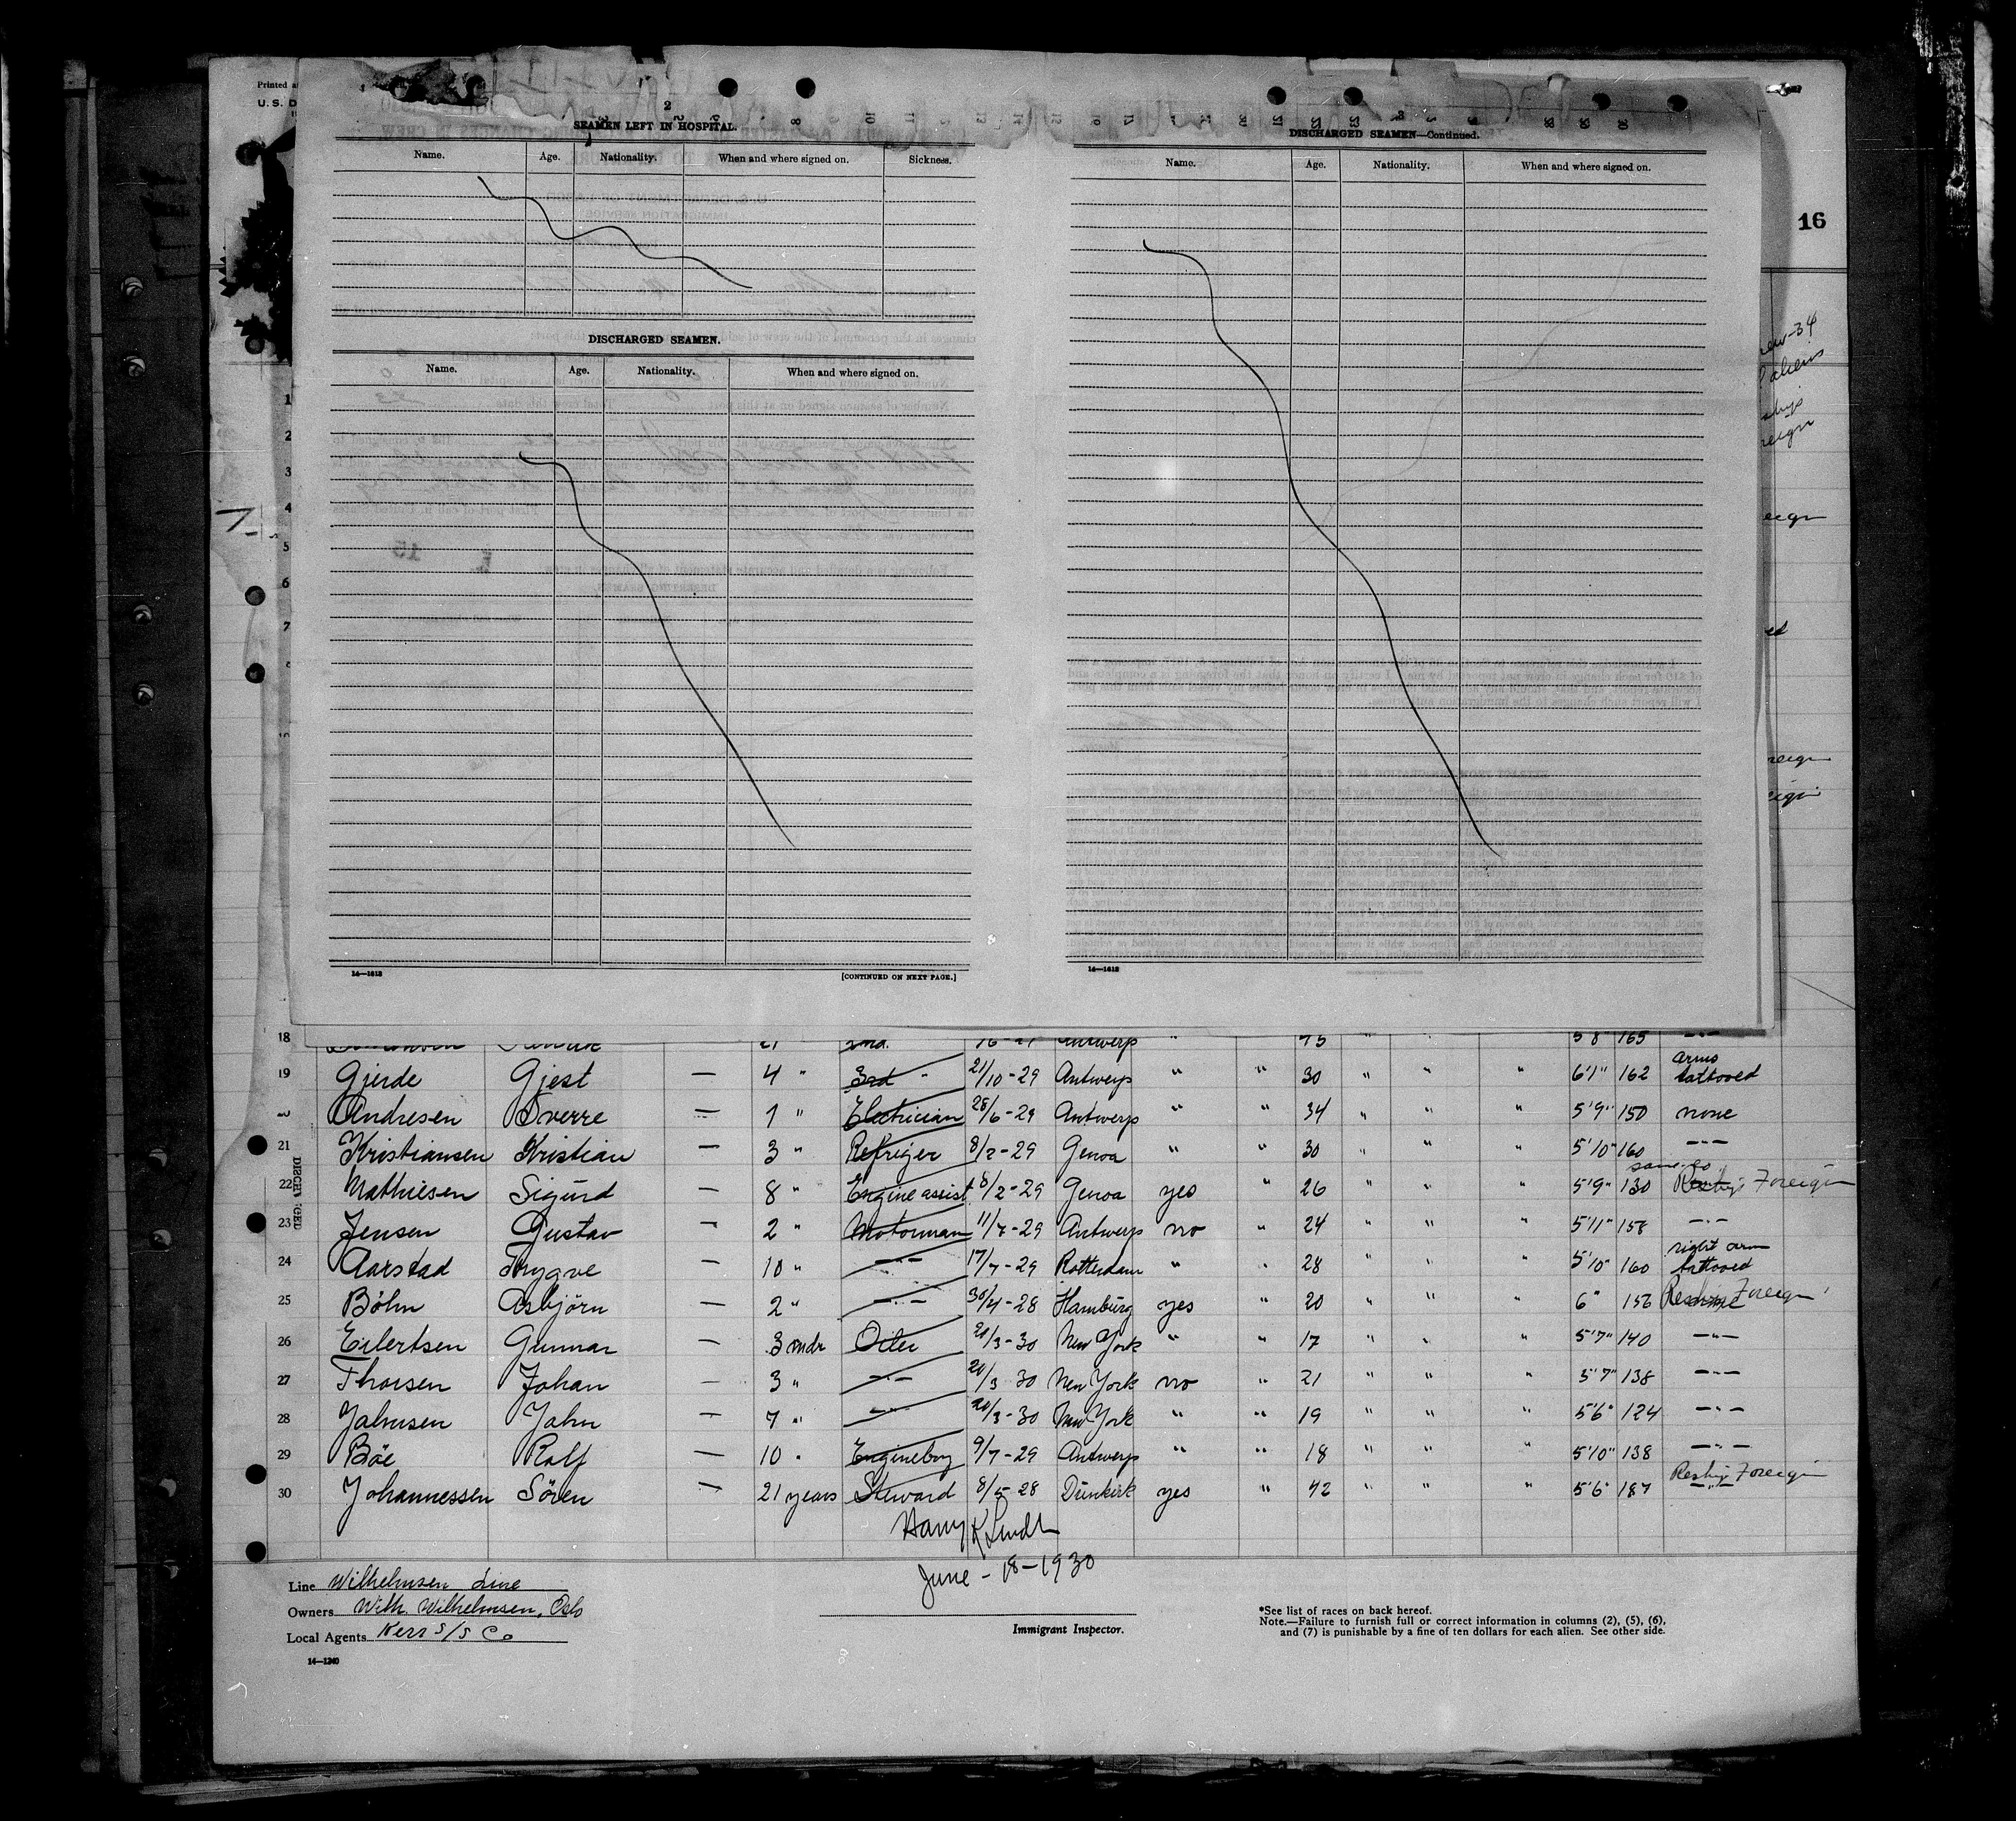 Printed
U. S. D
16
SEAMEN LEFT IN HOSPITAL.
Name. Age. Nationality. When and where signed on. Sickness.
DISCHARGED SEAMEN.
Name. Age. Nationality. When and where signed on.
1
2
3
4
5
6
7
14—1613 [CONTINUED ON NEXT PAGE.]
DISCHARGED SEAMEN—Continued.
Name. Age. Nationality. When and where signed on.
14—1613
18 21 " 2nd. Antwerp " 45 " " 5'8" 165 —"—
19 Gjerde Gjest — 4 " 3rd " 21/10-29 Antwerp " " 30 " " " 6'1" 162 arms tattooed
20 Andresen Sverre — 1 " Electrician 28/6-29 Antwerp " " 34 " " " 5'9" 150 none
21 Kristiansen Kristian — 3 " Refriger 8/2-29 Genoa " " 30 " " " 5'10" 160 —"—
22 Mathiesen Sigurd — 8 " Engine assist 8/2-29 Genoa yes 26 " " " 5'9" 130 Reship Foreign
23 Jensen Gustav — 2 " Motorman 11/7-29 Antwerp no " 24 " " " 5'11" 158 —"—
24 Aarstad Trygve — 10 " —"— 17/7-29 Rotterdam " " 28 " " " 5'10" 160 right arm tattooed
25 Böhn Asbjörn — 2 " —"— 30/4-28 Hamburg yes " 20 " " " 6" 156 Reship Foreign
26 Eilertsen Gunnar — 3 mdr Oiler 20/3-30 New York " " 17 " " " 5'7" 140 —"—
27 Thorsen Johan — 3 " —"— 20/3 30 New York no " 21 " " " 5'7" 138 —"—
28 Jahnsen Jahn — 7 " —"— 20/3-30 New York " " 19 " " " 5'6" 124 —"—
29 Böe Rolf — 10 " Engineboy 9/7-29 Antwerp " " 18 " " " 5'10" 138 —"—
30 Johannessen Sören — 21 years Steward 8/5-28 Dunkirk yes " 42 " " " 5'6" 187 Reship Foreign
DISCHARGED
Harry K Lindh
June - 18-1930
Immigrant Inspector.
Line Wilhelmsen Line
Owners Wilh. Wilhelmsen, Oslo
Local Agents Kerr S/S Co
14—1240
*See list of races on back hereof.
Note.—Failure to furnish full or correct information in columns (2), (5), (6),
and (7) is punishable by a fine of ten dollars for each alien. See other side.